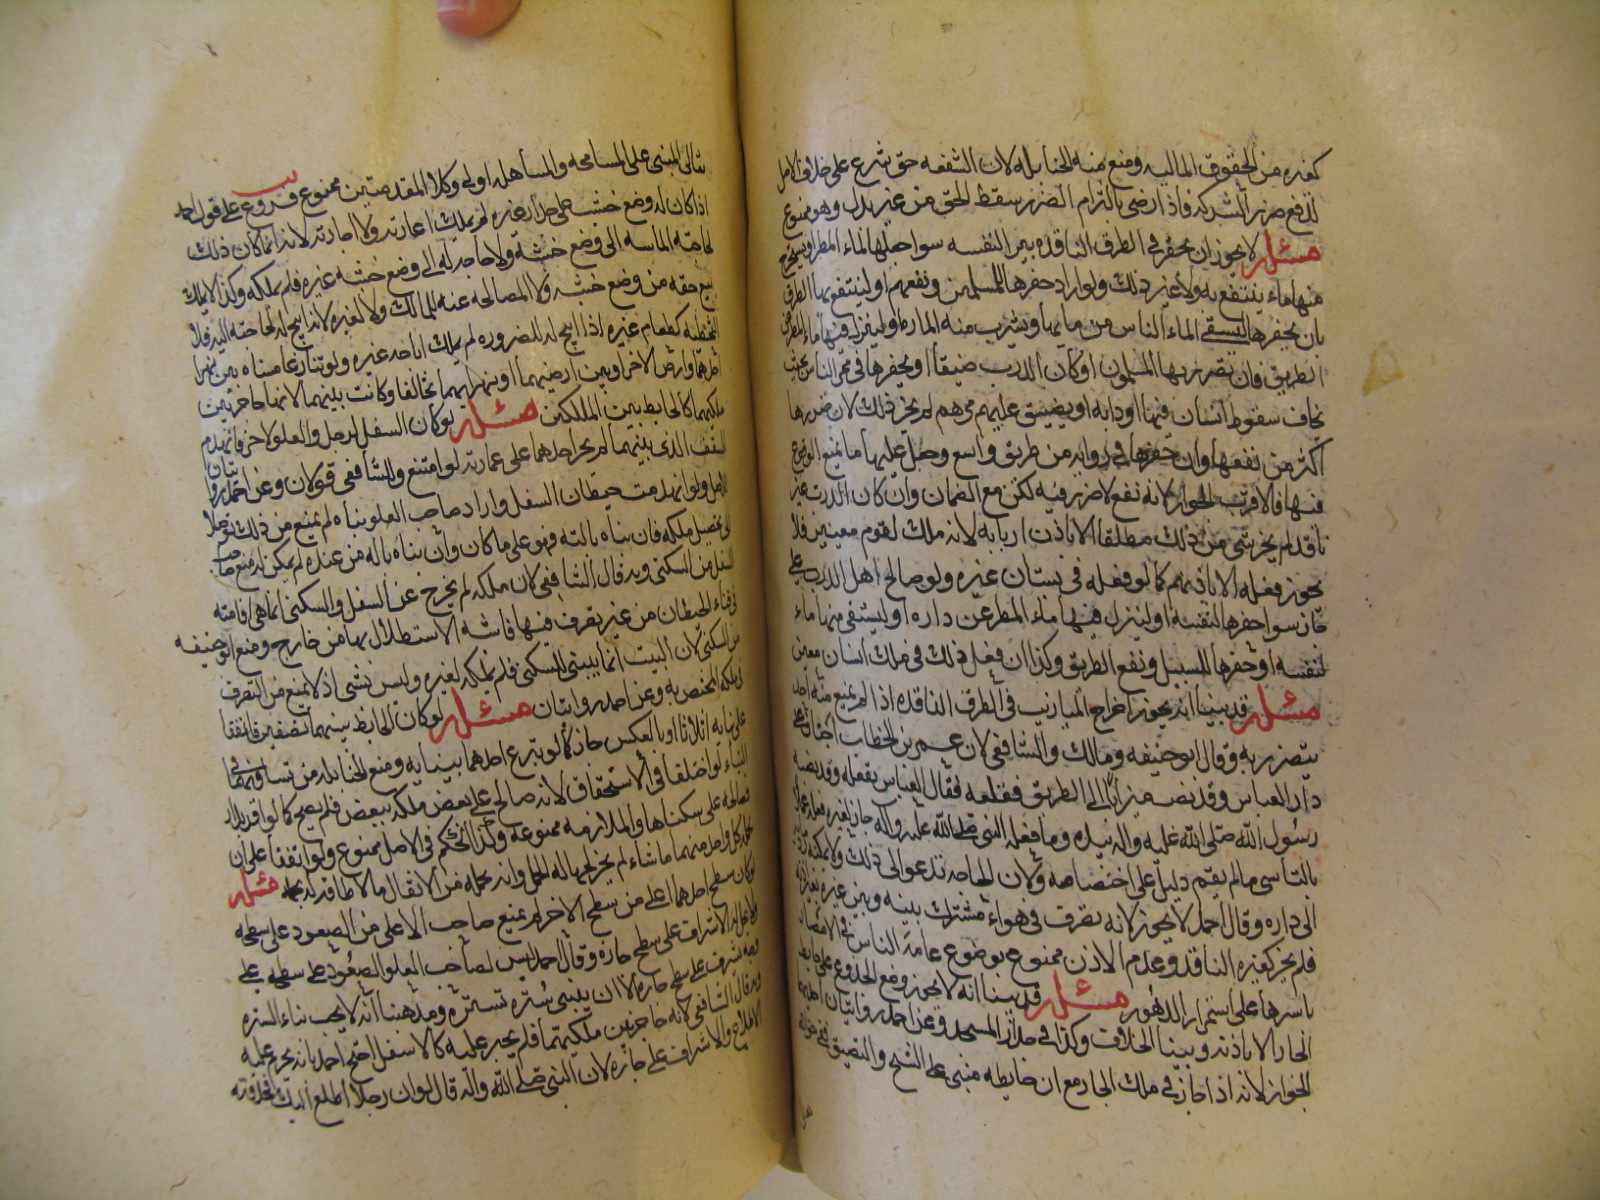 كغيره من الحقوق الماليه ومنع منه الحنابله لان الشفعه حق شرع على خلاف الاصل
لدفع ضرر الشركه فاذا رضي بالتزام الضرر سقط الحق من غير بدل وهو ممنوع
مسئله لا يجوز ان يحفر في الطرق النافذه بيرا لنفسه سوا جعلها لماء المطر او يستخرج
منها ماء ينتفع به ولا غير ذلك ولو اراد حفرها للمسلمين ونفعهم او لينتفع بها الطريق
بان يحفرها ليستقي الماء الناس من مايها ويشرب منه الماره او لينزل فيها ماء المطر عن
الطريق فان تضرر بها المسلمون او كان الدرب ضيقا او يحفرها في ممر الناس بحيث
يخاف سقوط انسان فيها او دابه او يضيق عليهم ممرهم لم يجز ذلك لان ضررها
اكثر من نفعها وان حفرها في زوايه من طريق واسع وجعل عليها ما يمنع الوقوع
فيها فالاقرب الجواز لانه نفع لا ضرر فيه لكن مع الضمان وان كان الدرب غير
نافذ لم يجز شي من ذلك مطلقا الا باذن اربابه لانه ملك لقوم معينين فلا
يجوز فعله الا باذنهم كما لو فعله في بستان غيره ولو صالح اهل الدرب على
جاز سوا حفرها لنفسه او لينزل فيها ماء المطر عن داره او ليستقي منها ماء
لنفسه او حفرها للسبيل ونفع الطريق وكذا ان فعل ذلك في ملك انسان معين
مسئله قد بينا انه يجوز اخراج الميازيب في الطرق النافذه اذا لم يمنع منه احد
يتضرر به وقال ابو حنيفه ومالك والشافعي لان عمر بن الخطاب اجتاز على
دار العباس وقد نصب ميزابا الى الطريق فقلعه فقال العباس تقلعه وقد نصبه
رسول الله صلى الله عليه واله بيده وما فعله النبي صلى الله عليه واله جاز لغيره فعله عملا
بالتاسي ما لم يقم دليل على اختصاصه ولان الحاجه تدعو الى ذلك ولا يمكنه
الى داره وقال احمد لا يجوز لانه تصرف في هواء مشترك بينه وبين غيره بغير اذنه
فلم يجز كغير النافذ وعدم الاذن ممنوع بوضوع عامة الناس في الامصار
باسرها على استمرار الدهور مسئله قد بينا انه لا يجوز وضع الجذوع على حايط
الجار الا باذنه وبينا الخلاف وكذا في جدار المسجد وعن احمد روايتان احدهما
الجواز لانه اذا جاز في ملك الجار مع ان حايطه مبني على الشح والضيق ففي حق الله
تعالى المبني على المسامحه والمساهله اولى وكلا المقدمتين ممنوع فروع على قول احمد
اذا كان له وضع خشبه على جدار غيره لم يملك اعارته ولا اجارته لانه انما كان ذلك
لحاجته الماسه الى وضع خشبه ولا حاجه له الى وضع خشبه غيره فلم يملكه وكذا لا يملك
بيع حقه من وضع خشبه ولا المصالحه عنه للمالك ولا لغيره لانه ابيح له لحاجته اليه فلا
كطعام غيره اذا ابيح له للضروره لم يملك اباحه غيره ولو تنازعا مسناه بين نهر
احدهما وارض الاخر او بين ارضيهما او نهريهما تحالفا وكانت بينهما لانها حاجز بين
ملكيهما كالحايط بين الملكين مسئله لو كان السفل لرجل والعلو لاخر فانهدم
السقف الذي بينهما لم يجز احدهما على عمارته لو امتنع وللشافعي قولان وعن احمد روايتان
الاصل ولو انهدمت حيطان السفل واراد صاحب العلو بناه لم يمنع من ذلك توصلا
الى تحصيل ملكه فان بناه بالته فهو على ما كان وان بناه باله من عنده لم يكن له منع صاحب
السفل من السكنى وبه قال الشافعي لان ملكه لم يخرج عن السفل والسكنى انما هي اقامته
في فناء الحيطان من غير تصرف فيها فاشبه الاستظلال بها من خارج ومنع ابو حنيفه
من السكنى لان البيت انما يبنى للسكنى فلم يملكه لغيره وليس بشي اذ لا يمنع من التصرف
في ملكه المختص به وعن احمد روايتان مسئله لو كان الحايط بينهما نصفين فاتفقا
على بنايه اثلاثا او بالعكس جاز كما لو تبرع احدهما ببنايه ومنع الحنابله من تساويهما في
البناء لو اختلفا في الاستحقاق لانه صالح على بعض ملكه ببعض فلم يصح كما لو اقر بدار
فصالحه على سكناها والملازمه ممنوعه وكذا الحكم في الاصل ممنوع ولو اتفقا على ان
يحمله كل واحد منهما ما شاء لم يجز لجهاله الحمل وانه يحمله من الاثقال ما لا طاقه له بحمله مسئله
لو كان سطح احدهما اعلى من سطح الاخر لم يمنع صاحب الاعلى من الصعود على سطحه
ولا يحل له الاشراف على سطح جاره وقال احمد ليس لصاحب العلو الصعود على سطحه على
وجه يشرف على سطح جاره الا ان يبني ستره تستره ومذهبنا انه لا يجب بناء الستره
وبه قال الشافعي لانه حاجز بين ملكيهما فلم يجبر عليه كالاسفل احتج احمد بانه يحرم عليه
الاطلاع والاشراف على جاره لان النبي صلى الله واله قال لو ان رجلا اطلع اليك فحذفته